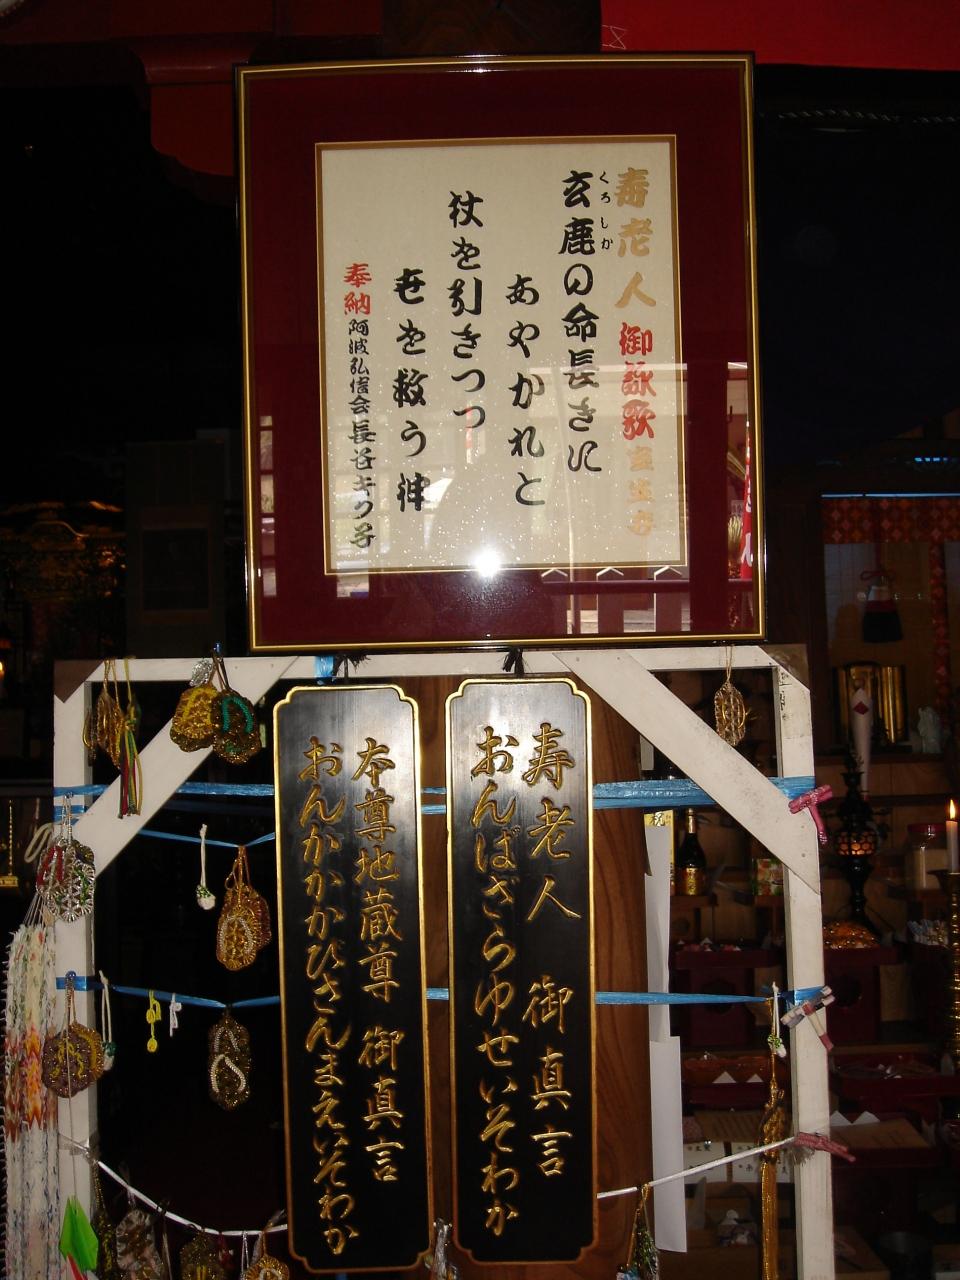 寿老人 御詠歌
玄鹿の命長きに
くろしか
あやかれと
杖を引きつつ
世を救う神
奉納 阿波弘信会 長谷キク子
寿老人 御真言
おんばざらゆせいそわか
本尊地蔵尊 御真言
おんかかかびさんまえいそわか
祝